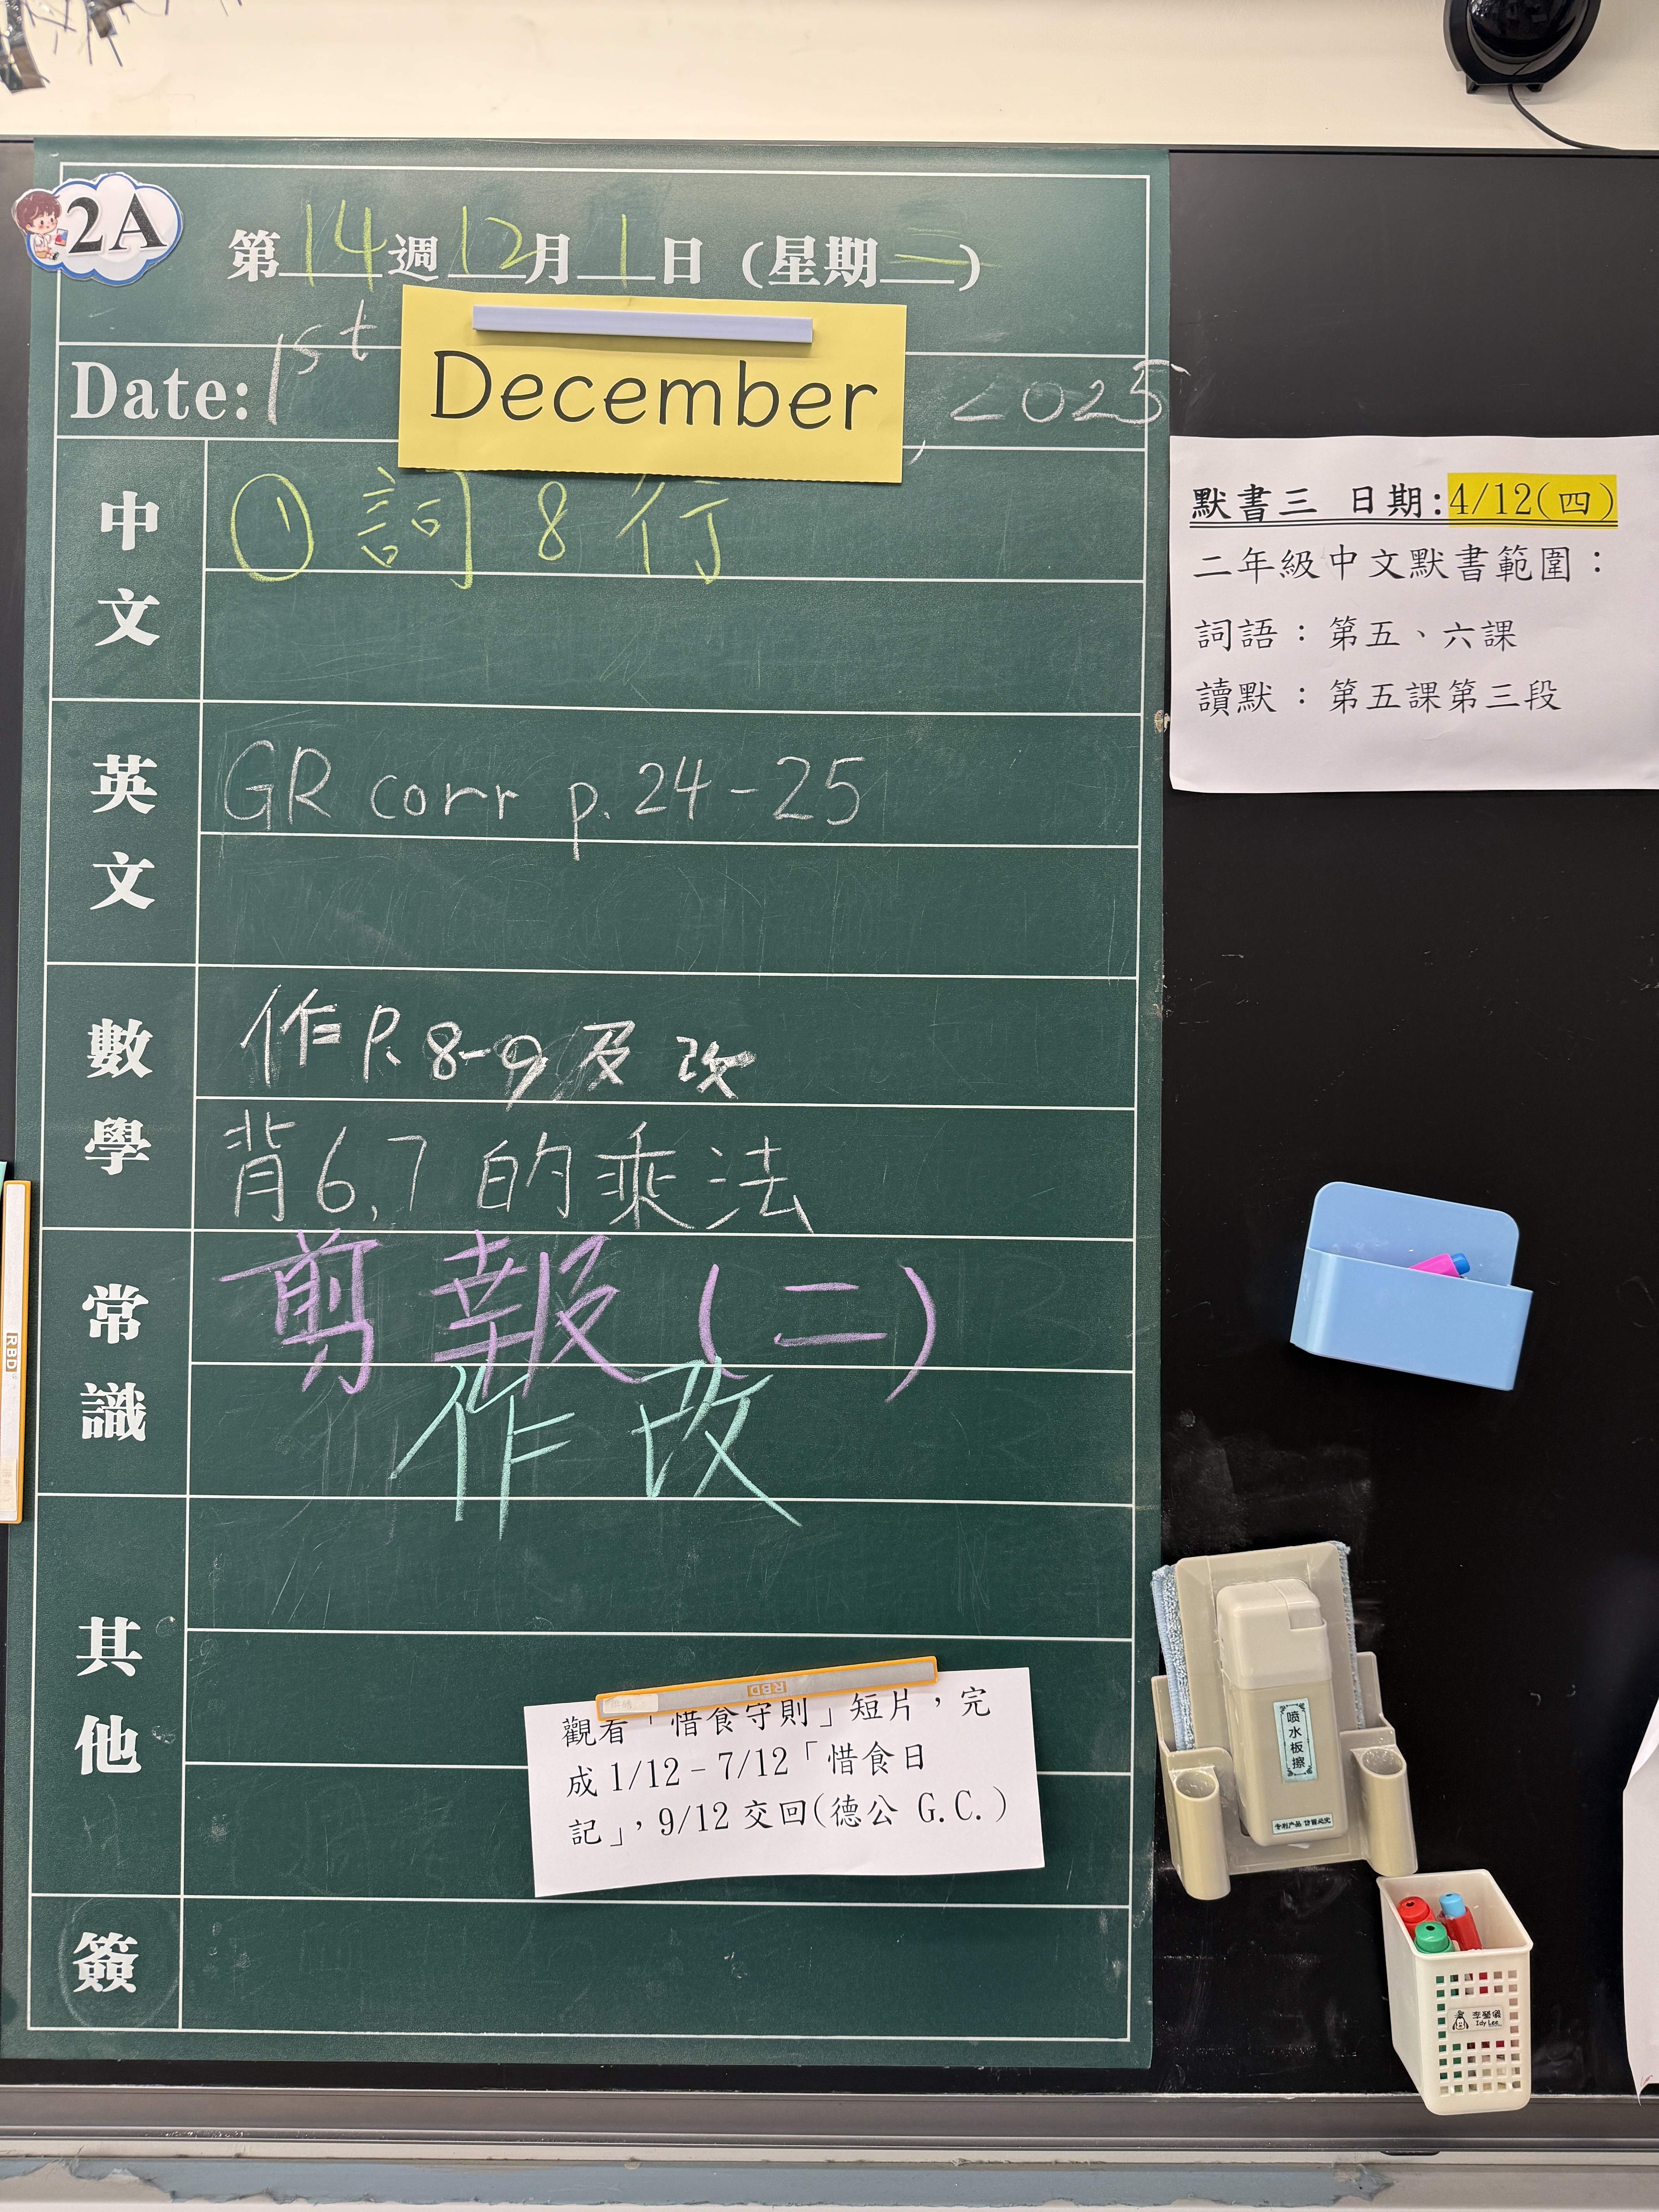 2A
第14週12月1日 (星期一)
Date: 1st December, 2025
中文
① 詞 8 行
英文
GR corr p.24-25
數學
作P.8-9及改
背6,7的乘法
常識
剪報(二)
作改
其他
觀看「惜食守則」短片，完
成1/12-7/12「惜食日
記」，9/12交回(德公 G.C.)
簽
默書三 日期:4/12(四)
二年級中文默書範圍：
詞語：第五、六課
讀默：第五課第三段
RBD
RBD
喷水板擦
专利产品 仿冒必究
李瑩儀
Idy Lee